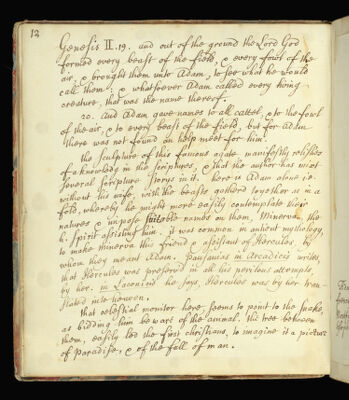 12
Genesis II. 19. and out of the ground the Lord God
formed every beast of the field, & every fowl of the
air, & brought them unto Adam, to see what he would
call them; & whatsoever Adam called every living
creature, that was the name thereof.
20. And Adam gave names to all cattel, & to the fowl
of the air, & to every beast of the field, but for Adam
there was not found an help meet for him.
the sculpture of this famous agate manifestly relishes
of a knowledg in the scriptures, & that the author has mixt
several scripture storys in it. here is Adam alone i.e.
without his wife, with the beasts gatherd together as in a
fold, whereby he might more easily contemplate their
natures & impose suitable names on them. Minerva, the
h. spirit assisting him. it was common in antient mythology
to make minerva the friend & assistant of Hercules, by
whom they meant Adam. Pausanias in Arcadicis writes,
that Hercules was preserved in all his perilous attempts,
by her. in Laconicis he says, Hercules was by her tran-
slated into heaven.
that celestial monitor here, seems to point to the snake,
as bidding him beware of the animal. the tree between
them, easily led the first christians, to imagine it a picture
of paradise, & of the fall of man.